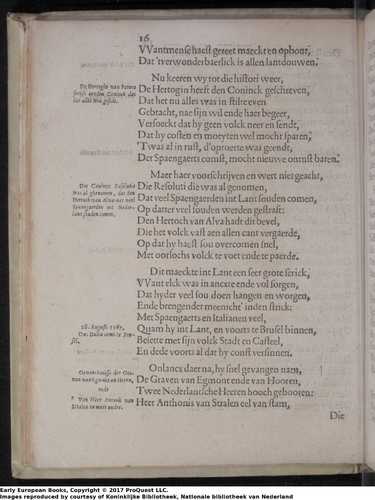 16
VVantmense haest gereet maeckt en opbout,
Dat 't verwonderbaerlick is allen lantdouwen.
Nu keeren wy tot die histori weer,
De Hertogin heeft den Coninck geschreven,
Dat het nu alles was in stilte even
Gebracht, nae sijn wil ende haer begeer,
Versoeckt dat hy geen volck neer en sendt,
Dat hy costen en moeyten wel mocht sparen,
'T was al in rust, d'oproerte was geendt,
Der Spaengaerts comst, mocht nieuwe onrust baren.
De Hertogin van Parma
schrijft aenden Coninck dat
het alles stil
Maer haer voorschrijven en wert niet geacht,
Die Resoluti die was al genomen,
Dat veel Spaengaerden int Lant souden comen,
Op datter veel souden werden gestraft:
Den Hertoch van Alva hadt dit bevel,
Die het volck vast aen allen cant vergaerde,
Op dat hy haest sou overcomen snel,
Met oorlochs volck te voet ende te paerde.
Die Conincx Resolutie
was al ghenomen, dat den
Hertoch van Alva met veel
Spaengaerden int Neder-
lant souden comen.
Dit maeckte int Lant een seer grote schrick,
VVant elck was in ancxte ende vol sorgen,
Dat hyder veel sou doen hangen en worgen,
Ende brengender meenicht' inden strick:
Met Spaengaerts en Italianen veel,
Quam hy int Lant, en voorts te Brusel binnen,
Besette met sijn volck Stadt en Casteel,
En dede voorts al dat hy const versinnen.
28. Augusti 1567.
Duc Dalva comt te Brus-
sel.
Onlancx daerna, hy snel gevangen nam,
De Graven van Egmont ende van Hooren,
Twee Nederlantsche Heeren hooch gebooren:
Heer Anthonis van Stralen eel van stam,
Gevanckenisse der Gra-
ven van Egmont en Hoorn,
ende
Van Heer Antonis van
Stralen en meer andre.
Die
Early European Books, Copyright © 2017 ProQuest LLC.
Images reproduced by courtesy of Koninklijke Bibliotheek, Nationale bibliotheek van Nederland